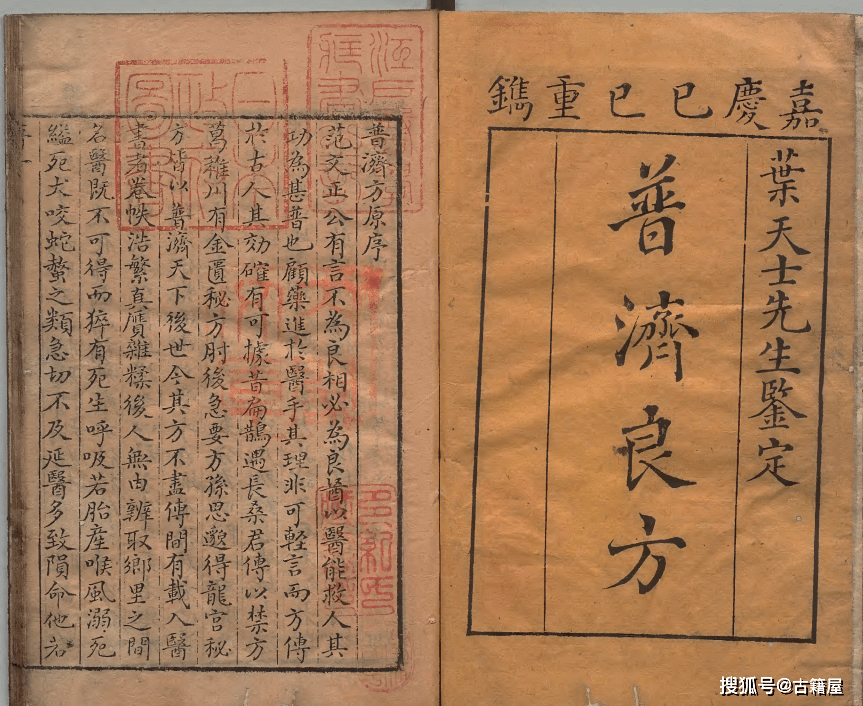 嘉慶己巳重鐫
葉天士先生鑒定
普濟良方
普濟方原序
范文正公有言不為良相必為良醫以醫能救人其
功為甚普也顧藥進於醫手其理非可輕言而方傳
於古人其効確有可據昔扁鵲遇長桑君傳以禁方
葛稚川有金匱秘方肘後急要方孫思邈得龍宮秘
方皆以普濟天下後世今其方不盡傳間有載入醫
書者卷帙浩繁真贋雜糅後人無由辨取鄉里之間
名醫既不可得而猝有死生呼吸若胎產喉風溺死
縊死犬咬蛇螫之類急切不及延醫多致隕命他若
搜狐号@古籍屋